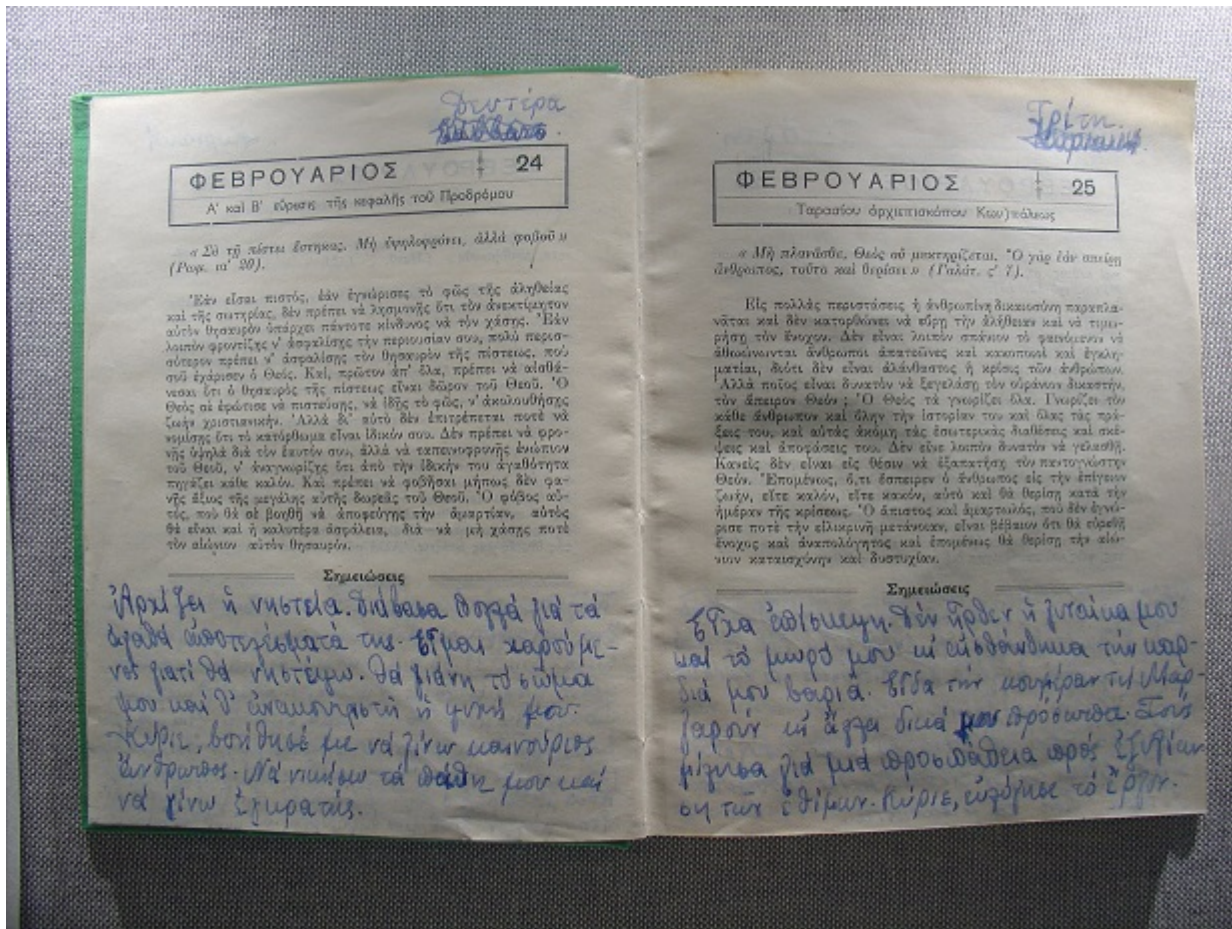 Δευτέρα
ΦΕΒΡΟΥΑΡΙΟΣ 24
Α' καὶ Β' εὕρεσις τῆς κεφαλῆς τοῦ Προδρόμου
« Σὺ τῇ πίστει ἕστηκας. Μὴ ὑψηλοφρόνει, ἀλλὰ φοβοῦ »
(Ρωμ. ια' 20).
Ἐὰν εἶσαι πιστός, ἐὰν ἐγνώρισες τὸ φῶς τῆς ἀληθείας
καὶ τῆς σωτηρίας, δὲν πρέπει νὰ λησμονῇς ὅτι τὸν ἀνεκτίμητον
αὐτὸν θησαυρὸν ὑπάρχει πάντοτε κίνδυνος νὰ τὸν χάσῃς. Ἐὰν
λοιπὸν φροντίζῃς ν' ἀσφαλίσῃς τὴν περιουσίαν σου, πολὺ περισ-
σότερον πρέπει ν' ἀσφαλίσῃς τὸν θησαυρὸν τῆς πίστεως, ποὺ
σοῦ ἐχάρισεν ὁ Θεός. Καί, πρῶτον ἀπ' ὅλα, πρέπει νὰ αἰσθά-
νεσαι ὅτι ὁ θησαυρὸς τῆς πίστεως εἶναι δῶρον τοῦ Θεοῦ. Ὁ
Θεὸς σὲ ἐφώτισε νὰ πιστεύσῃς, νὰ ἰδῇς τὸ φῶς, ν' ἀκολουθήσῃς
ζωὴν χριστιανικήν. Ἀλλὰ δι' αὐτὸ δὲν ἐπιτρέπεται ποτὲ νὰ
νομίσῃς ὅτι τὸ κατόρθωμα εἶναι ἰδικόν σου. Δὲν πρέπει νὰ φρο-
νῇς ὑψηλὰ διὰ τὸν ἑαυτόν σου, ἀλλὰ νὰ ταπεινοφρονῇς ἐνώπιον
τοῦ Θεοῦ, ν' ἀναγνωρίζῃς ὅτι ἀπὸ τὴν ἰδικήν του ἀγαθότητα
πηγάζει κάθε καλόν. Καὶ πρέπει νὰ φοβῆσαι μήπως δὲν φα-
νῇς ἄξιος τῆς μεγάλης αὐτῆς δωρεᾶς τοῦ Θεοῦ. Ὁ φόβος αὐ-
τός, ποὺ θὰ σὲ βοηθῇ νὰ ἀποφεύγῃς τὴν ἁμαρτίαν, αὐτὸς
θὰ εἶναι καὶ ἡ καλυτέρα ἀσφάλεια, διὰ νὰ μὴ χάσῃς ποτὲ
τὸν αἰώνιον αὐτὸν θησαυρόν.
Σημειώσεις
Ἀρχίζει ἡ νηστεία. Διάβασα πολλά γιά τά
ἀγαθά ἀποτελέσματά της. Εἶμαι χαρούμε-
νος γιατί θά νηστέψω. Θά γιάνη τό σῶμα
μου καί θ' ἀνακουφιστῆ ἡ ψυχή μου.
Κύριε, βοήθησέ με νά γίνω καινούριος
ἄνθρωπος. Νά νικήσω τά πάθη μου καί
νά γίνω ἐγκρατής.
Τρίτη.
ΦΕΒΡΟΥΑΡΙΟΣ 25
Ταρασίου ἀρχιεπισκόπου Κων)πόλεως
« Μὴ πλανᾶσθε, Θεὸς οὐ μυκτηρίζεται. Ὃ γὰρ ἐὰν σπείρῃ
ἄνθρωπος, τοῦτο καὶ θερίσει » (Γαλάτ. ς' 7).
Εἰς πολλὰς περιστάσεις ἡ ἀνθρωπίνη δικαιοσύνη παραπλα-
νᾶται καὶ δὲν κατορθώνει νὰ εὕρῃ τὴν ἀλήθειαν καὶ νὰ τιμω-
ρήσῃ τὸν ἔνοχον. Δὲν εἶναι λοιπὸν σπάνιον τὸ φαινόμενον νὰ
ἀθωώνωνται ἄνθρωποι ἀπατεῶνες καὶ κακοποιοὶ καὶ ἐγκλη-
ματίαι, διότι δὲν εἶναι ἀλάνθαστος ἡ κρίσις τῶν ἀνθρώπων.
Ἀλλὰ ποῖος εἶναι δυνατὸν νὰ ξεγελάσῃ τὸν οὐράνιον δικαστήν,
τὸν ἄπειρον Θεόν ; Ὁ Θεὸς τὰ γνωρίζει ὅλα. Γνωρίζει τὸν
κάθε ἄνθρωπον καὶ ὅλην τὴν ἱστορίαν του καὶ ὅλας τὰς πρά-
ξεις του, καὶ αὐτὰς ἀκόμη τὰς ἐσωτερικὰς διαθέσεις καὶ σκέ-
ψεις καὶ ἀποφάσεις του. Δὲν εἶνε λοιπὸν δυνατὸν νὰ γελασθῇ.
Κανεὶς δὲν εἶναι εἰς θέσιν νὰ ἐξαπατήσῃ τὸν παντογνώστην
Θεόν. Ἑπομένως, ὅ,τι ἔσπειρεν ὁ ἄνθρωπος εἰς τὴν ἐπίγειον
ζωήν, εἴτε καλόν, εἴτε κακόν, αὐτὸ καὶ θὰ θερίσῃ κατὰ τὴν
ἡμέραν τῆς κρίσεως. Ὁ ἄπιστος καὶ ἁμαρτωλός, ποὺ δὲν ἐγνώ-
ρισε ποτὲ τὴν εἰλικρινῆ μετάνοιαν, εἶναι βέβαιον ὅτι θὰ εὑρεθῇ
ἔνοχος καὶ ἀναπολόγητος καὶ ἑπομένως θὰ θερίσῃ τὴν αἰώ-
νιον καταισχύνην καὶ δυστυχίαν.
Σημειώσεις
Εἶχα ἐπίσκεψη. Δέν ἦρθεν ἡ γυναίκα μου
καί τό μωρό μου κι αἰσθάνθηκα τήν καρ-
διά μου βαριά. Εἶδα τήν κουμέραν τή Μαρ-
γαρούν κι ἄλλα δικά μου πρόσωπα. Τούς
μίλησα γιά μιά προσπάθεια πρός ἐξυγίαν
ση τῶν ἐθίμων. Κύριε, εὐλόγησε τό ἔργον.